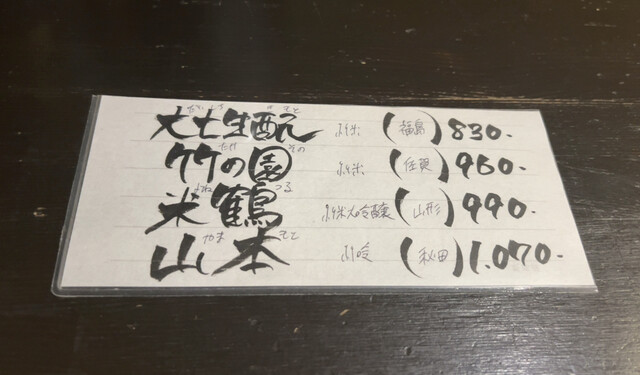 だいしち きもと
大七生酛 純米 (福島) 830.-
たけ その
竹の園 純米 (佐賀) 960.-
よね つる
米鶴 純米大吟醸 (山形) 990.-
やま もと
山本 純吟 (秋田) 1.070.-